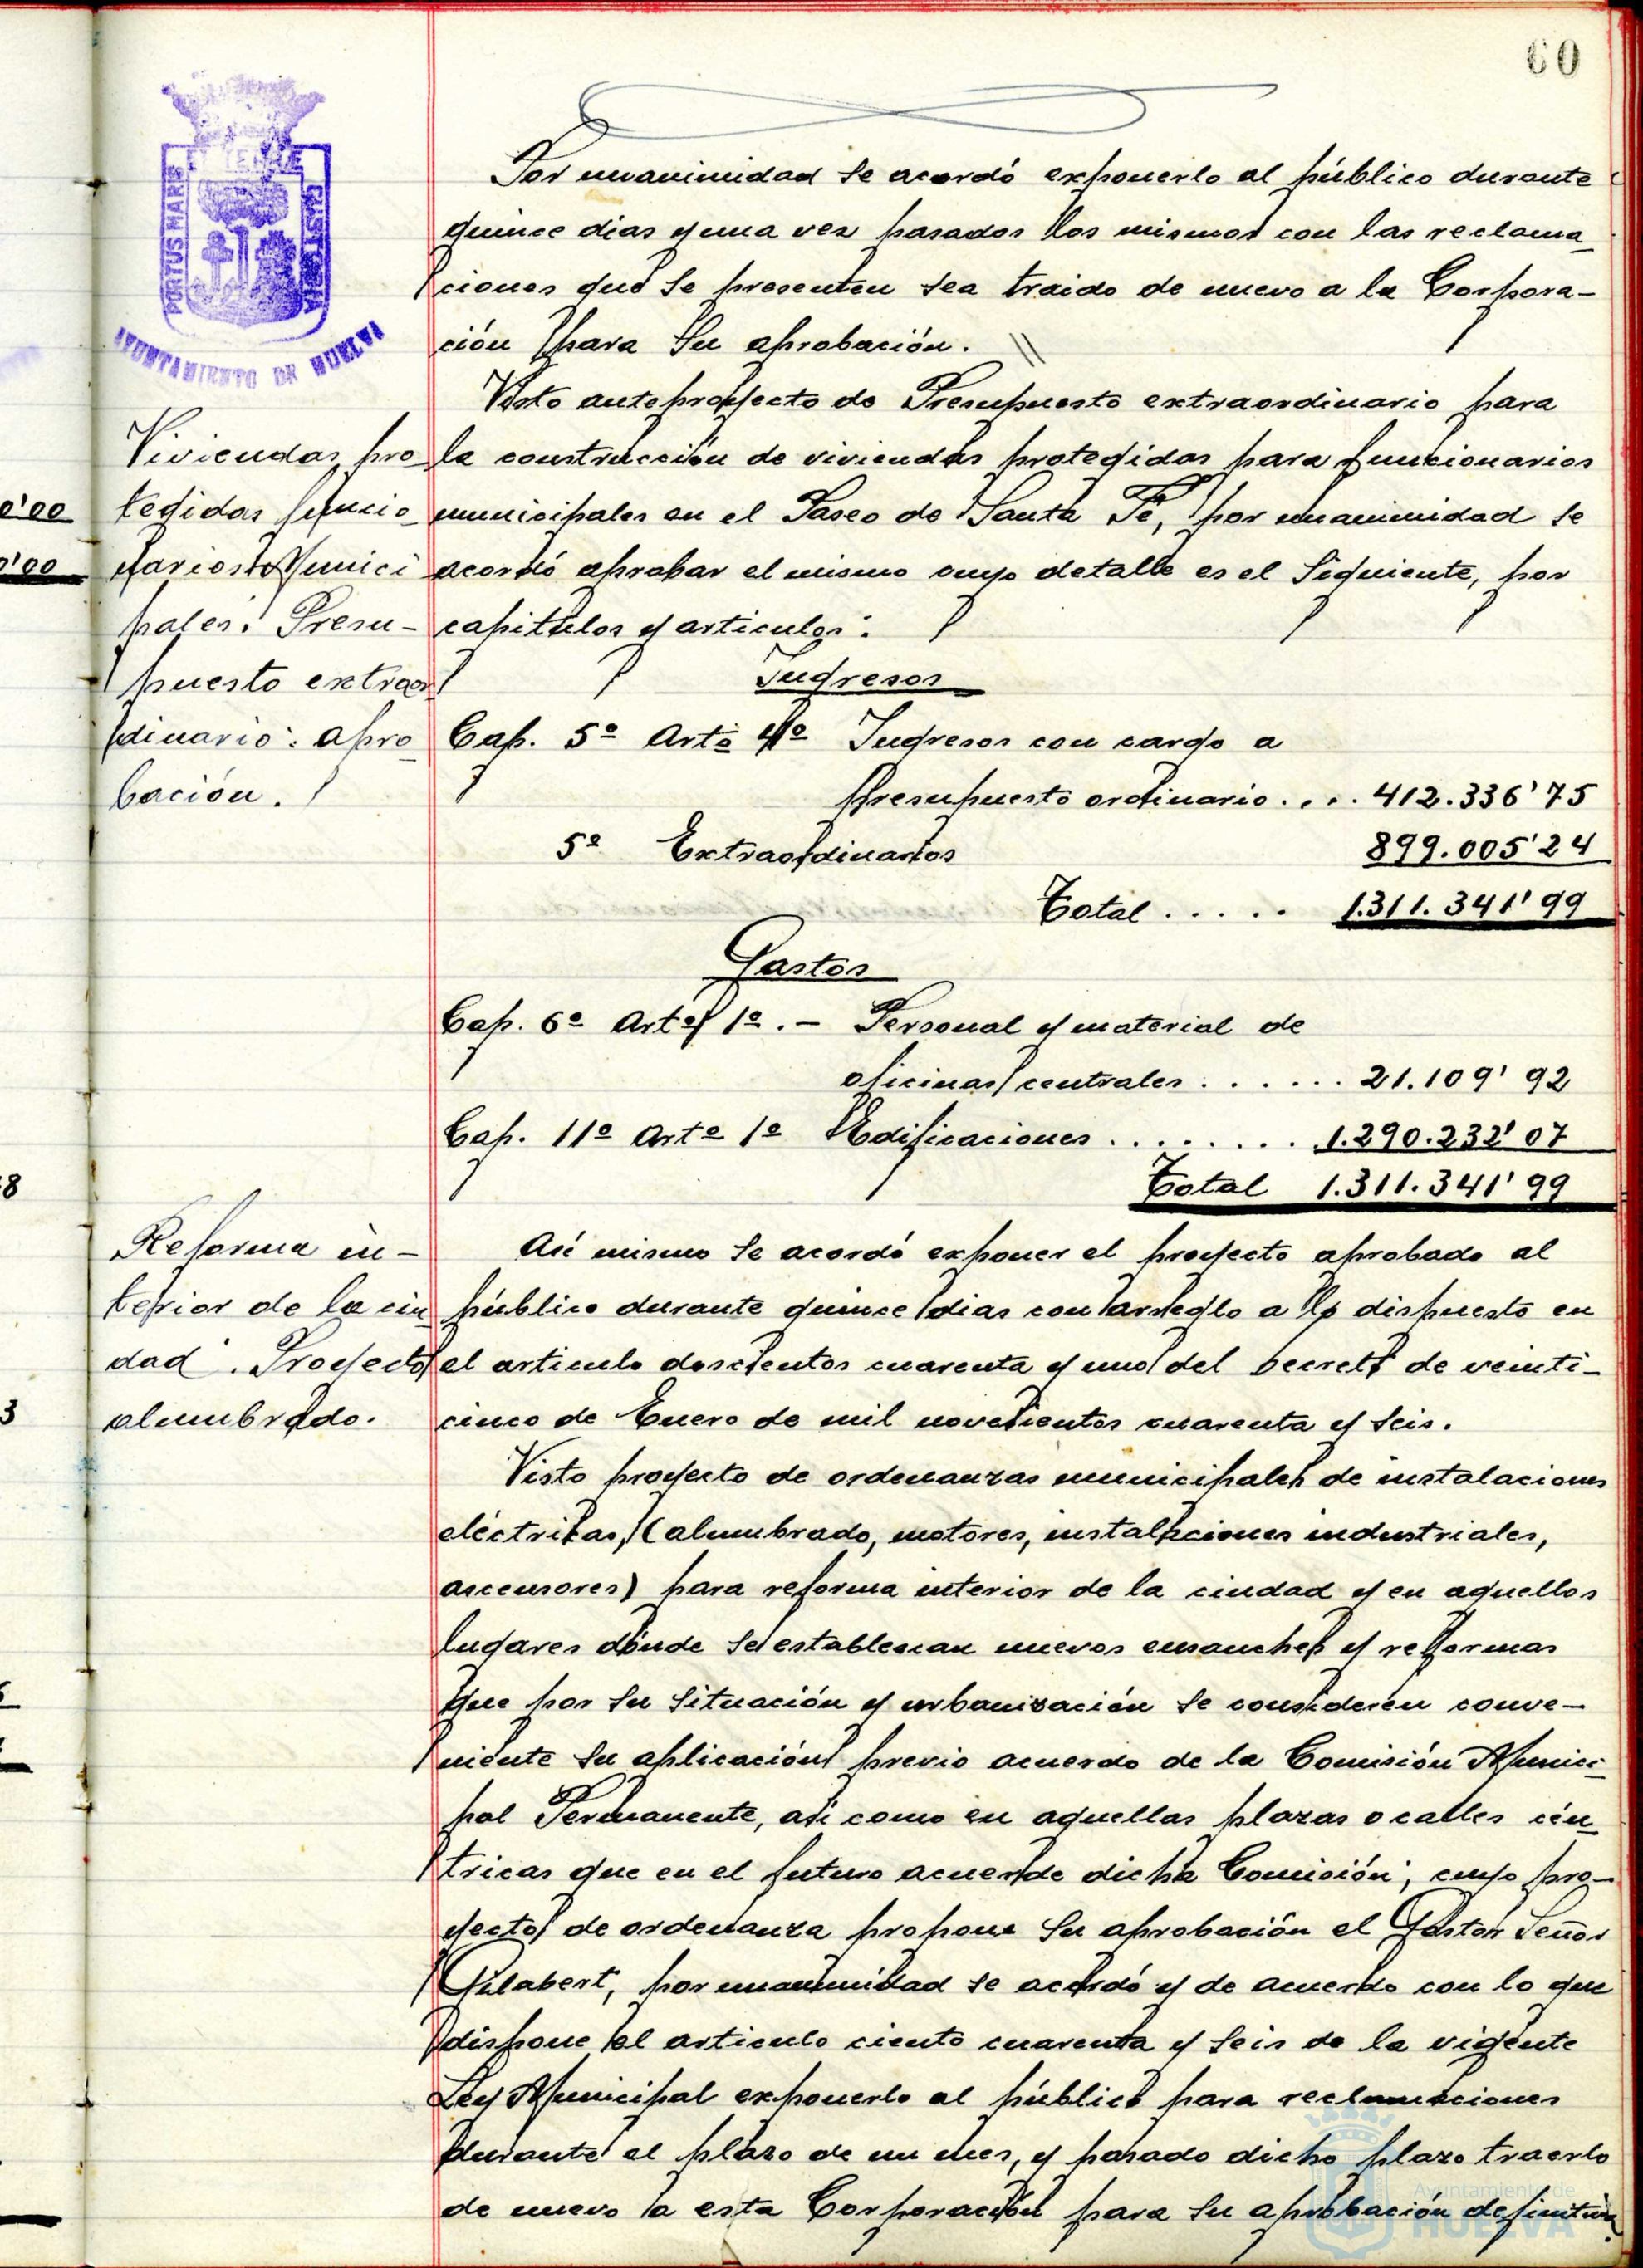 60
PORTUS MARIS
ET TERRE
CUSTODIA
AYUNTAMIENTO DE HUELVA
Por unanimidad se acordó exponerlo al público durante
quince dias y una vez pasados los mismos con las reclama
ciones que se presenten sea traido de nuevo a la Corpora-
ción para su aprobación.
Viviendas pro
tegidas funcio
narios Munici
pales. Presu-
puesto extraor
dinario: apro
bación.
Visto anteproyecto de Presupuesto extraordinario para
la construcción de viviendas protegidas para funcionarios
municipales en el Paseo de Santa Fé, por unanimidad se
acordó aprobar el mismo cuyo detalle es el siguiente, por
capitulos y articulos:
Ingresos
Cap. 5º Artº 4º Ingresos con cargo a
presupuesto ordinario.... 412.336'75
5º Extraordinarios 899.005'24
Total..... 1.311.341'99
Gastos
Cap. 6º Artº 1º.- Personal y material de
oficinas centrales...... 21.109'92
Cap. 11º Artº 1º Edificaciones........ 1.290.232'07
Total 1.311.341'99
Reforma in-
terior de la ciu
dad. Proyecto
alumbrado.
Asi mismo se acordó exponer el proyecto aprobado al
público durante quince dias con arreglo a lo dispuesto en
el articulo doscientos cuarenta y uno del Decreto de veinti-
cinco de Enero de mil novecientos cuarenta y seis.
Visto proyecto de ordenanzas municipales de instalaciones
eléctricas, (alumbrado, motores, instalaciones industriales,
ascensores) para reforma interior de la ciudad y en aquellos
lugares dónde se establezcan nuevos ensanches y reformas
que por su situación y urbanización se consideren conve-
niente su aplicación previo acuerdo de la Comisión Munici
pal Permanente, asi como en aquellas plazas o calles cén
tricas que en el futuro acuerde dicha Comisión; cuyo pro-
yecto de ordenanza propone su aprobación el Gestor Señor
Gilabert, por unanimidad se acordó y de acuerdo con lo que
dispone el articulo ciento cuarenta y seis de la vigente
Ley Municipal exponerlo al público para reclamaciones
durante el plazo de un mes, y pasado dicho plazo traerlo
de nuevo a esta Corporación para su aprobación definitiva.
0'00
0'00
8
3
Ayuntamiento de
HUELVA